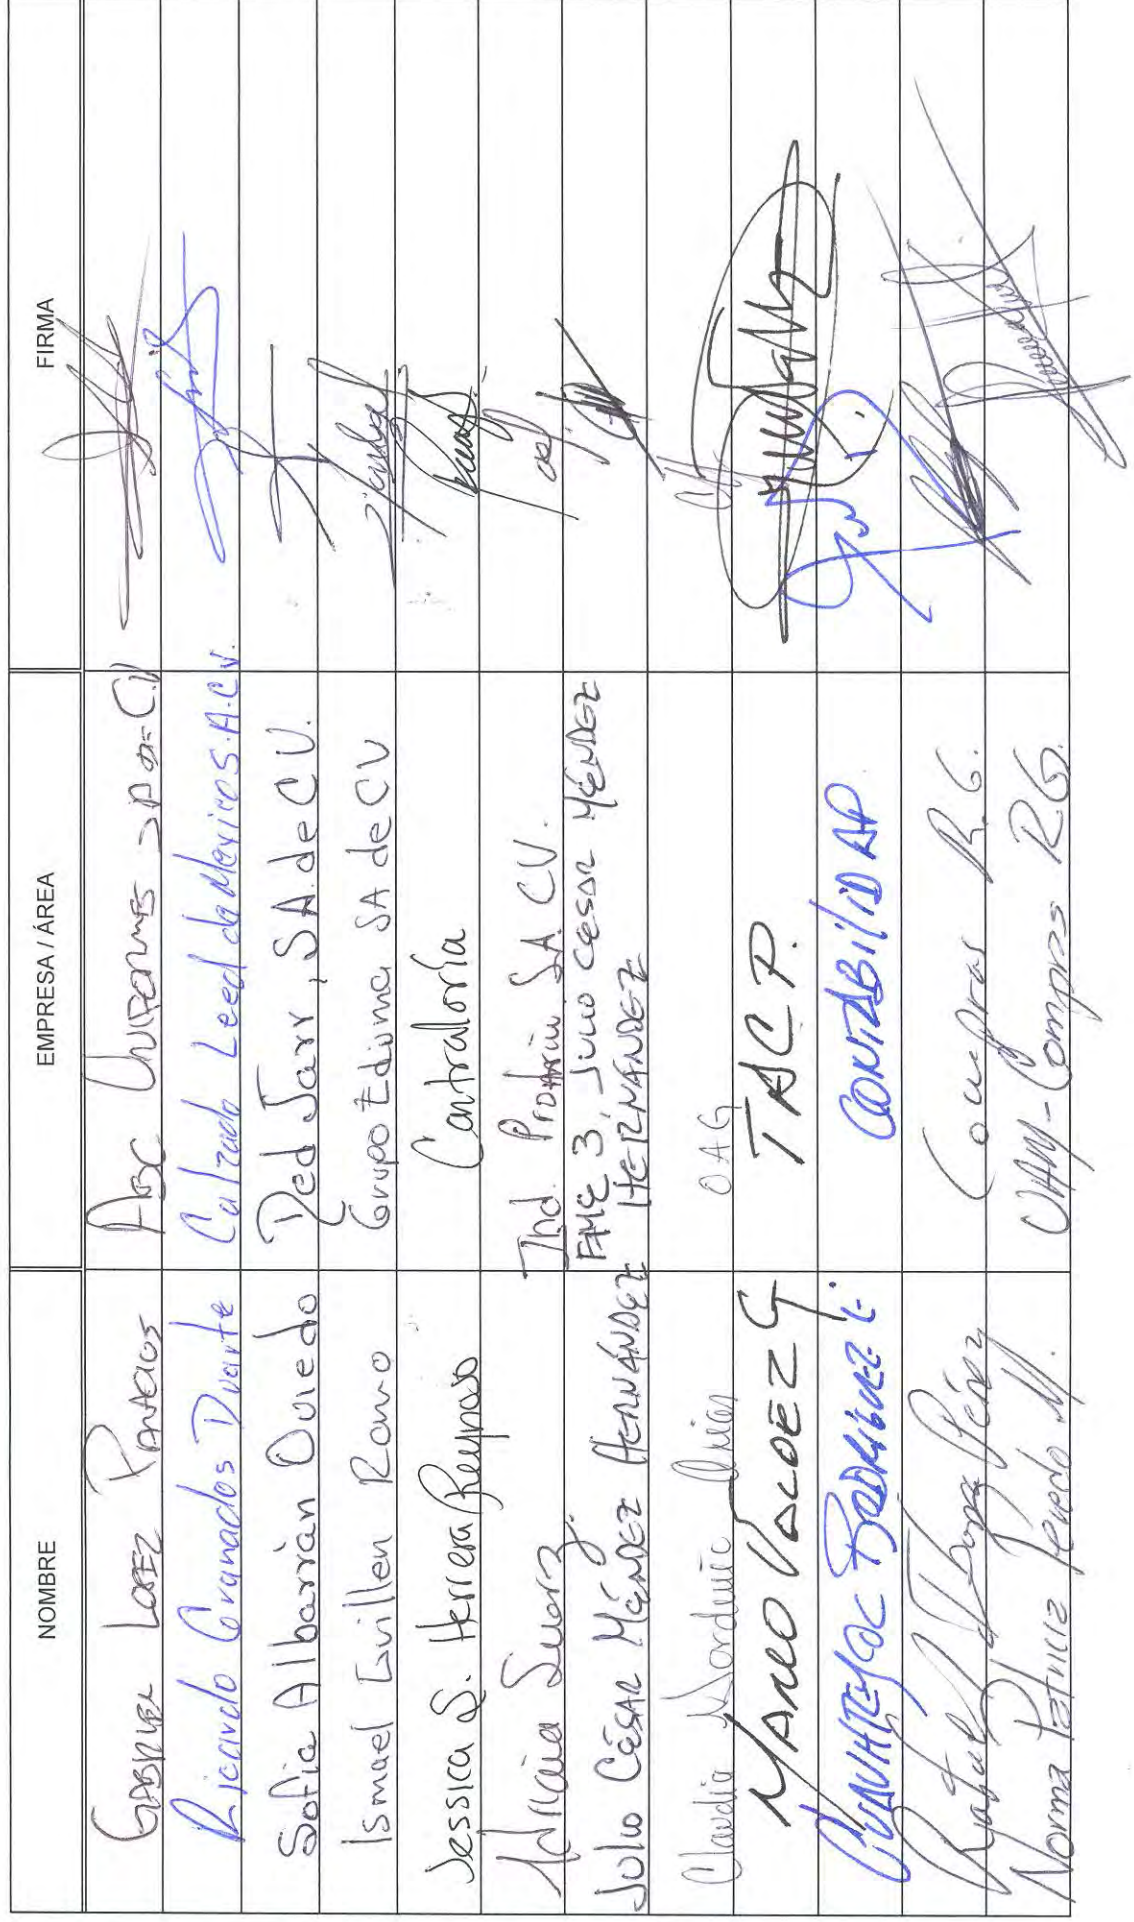 NOMBRE EMPRESA / ÁREA FIRMA
GABRIEL LOPEZ ABC UNIFORMES
Ricardo Granados Duarte Calzado Leed de Mexico S.A.C.V.
Sofia Albarrán Oviedo Red Jarr, SA. de C.V.
Ismael Guillen Romo Grupo Edisma SA de CV
Jessica S. Herrera Reynoso Contraloría
Adriana Ind. SA CV.
JULIO CÉSAR MÉNDEZ HERNÁNDEZ FME 3, JULIO CESAR MÉNDEZ
HERNANDEZ
Claudia OAG
MARCO VALDEZ G TACP.
CUAUHTEMOC RODRIGUEZ E. CONTABILIDAD
Rafael Pérez Compras R.G.
Norma Patricia M. UAM-Compras RG.